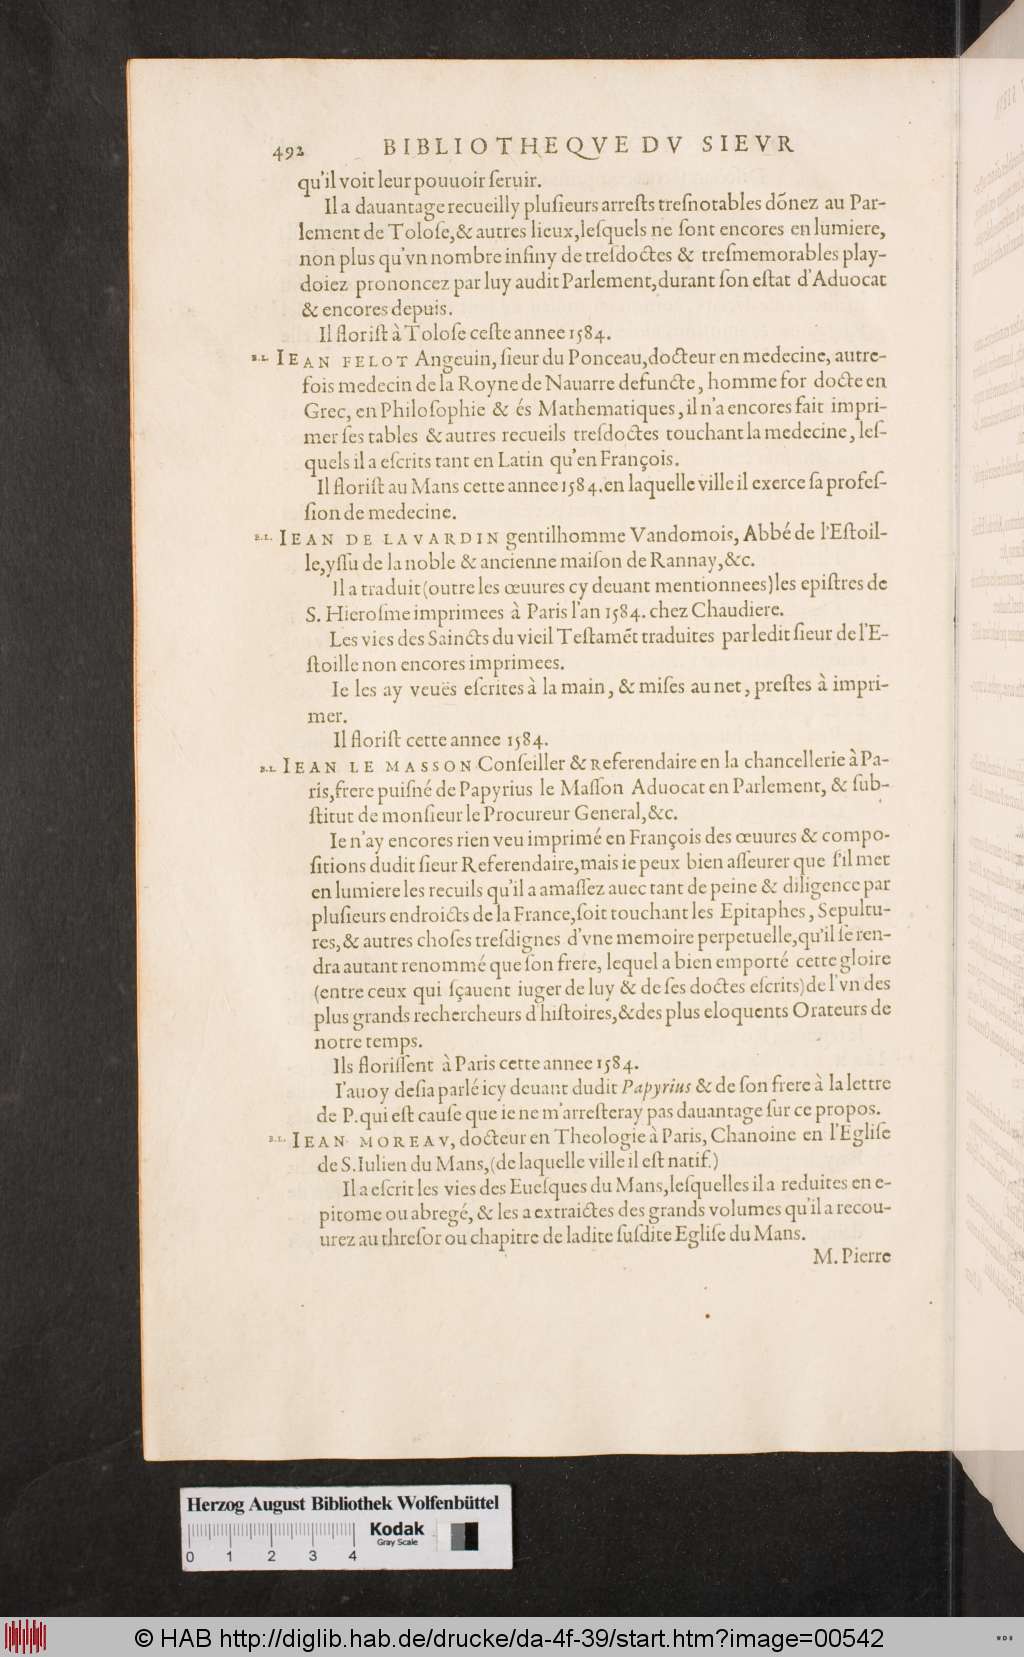 492 BIBLIOTHEQVE DV SIEVR
qu'il voit leur pouuoir ſeruir.
Il a dauantage recueilly pluſieurs arreſts treſnotables dõnez au Par-
lement de Toloſe, & autres lieux, leſquels ne ſont encores en lumiere,
non plus qu'vn nombre infiny de treſdoctes & treſmemorables play-
doiez prononcez par luy audit Parlement, durant ſon eſtat d'Aduocat
& encores depuis.
Il floriſt à Toloſe ceſte annee 1584.
B.L. IEAN FELOT Angeuin, ſieur du Ponceau, docteur en medecine, autre-
fois medecin de la Royne de Nauarre defuncte, homme for docte en
Grec, en Philoſophie & és Mathematiques, il n'a encores fait impri-
mer ſes tables & autres recueils treſdoctes touchant la medecine, leſ-
quels il a eſcrits tant en Latin qu'en François.
Il floriſt au Mans cette annee 1584. en laquelle ville il exerce ſa profeſ-
ſion de medecine.
B.L. IEAN DE LAVARDIN gentilhomme Vandomois, Abbé de l'Eſtoil-
le, yſſu de la noble & ancienne maiſon de Rannay, &c.
Il a traduit (outre les œuures cy deuant mentionnees) les epiſtres de
S. Hieroſme imprimees à Paris l'an 1584. chez Chaudiere.
Les vies des Saincts du vieil Teſtamẽt traduites par ledit ſieur de l'E-
ſtoille non encores imprimees.
Ie les ay veuës eſcrites à la main, & miſes au net, preſtes à impri-
mer.
Il floriſt cette annee 1584.
B.L. IEAN LE MASSON Conſeiller & Referendaire en la chancellerie à Pa-
ris, frere puiſné de Papyrius le Maſſon Aduocat en Parlement, & ſub-
ſtitut de monſieur le Procureur General, &c.
Ie n'ay encores rien veu imprimé en François des œuures & compo-
ſitions dudit ſieur Referendaire, mais ie peux bien aſſeurer que ſ'il met
en lumiere les recuils qu'il a amaſſez auec tant de peine & diligence par
pluſieurs endroicts de la France, ſoit touchant les Epitaphes, Sepultu-
res, & autres choſes treſdignes d'vne memoire perpetuelle, qu'il ſe ren-
dra autant renommé que ſon frere, lequel a bien emporté cette gloire
(entre ceux qui ſçauent iuger de luy & de ſes doctes eſcrits) de l'vn des
plus grands rechercheurs d'hiſtoires, & des plus eloquents Orateurs de
notre temps.
Ils floriſſent à Paris cette annee 1584.
I'auoy deſia parlé icy deuant dudit Papyrius & de ſon frere à la lettre
de P. qui eſt cauſe que ie ne m'arreſteray pas dauantage ſur ce propos.
B.L. IEAN MOREAV, docteur en Theologie à Paris, Chanoine en l'Egliſe
de S. Iulien du Mans, (de laquelle ville il eſt natif.)
Il a eſcrit les vies des Eueſques du Mans, leſquelles il a reduites en e-
pitome ou abregé, & les a extraictes des grands volumes qu'il a recou-
urez au threſor ou chapitre de ladite ſuſdite Egliſe du Mans.
M. Pierre
Herzog August Bibliothek Wolfenbüttel
Kodak
Gray Scale
0 1 2 3 4
© HAB http://diglib.hab.de/drucke/da-4f-39/start.htm?image=00542